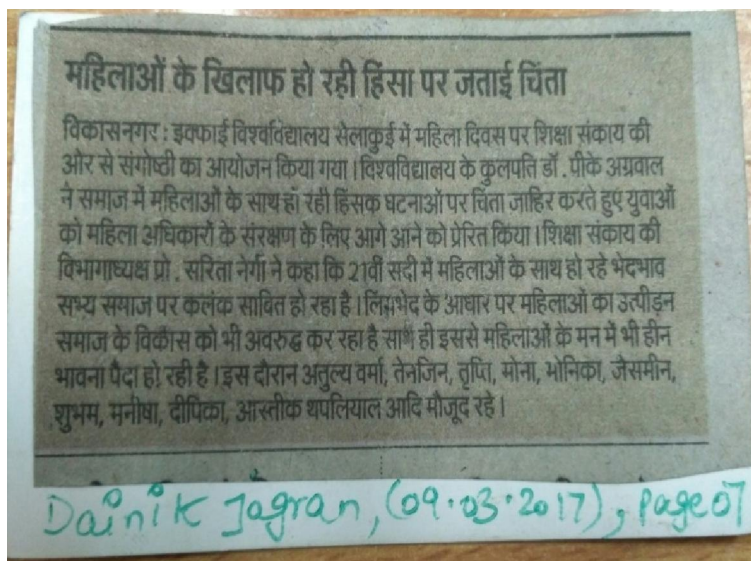 महिलाओं के खिलाफ हो रही हिंसा पर जताई चिंता
विकासनगर : इक्फाई विश्वविद्यालय सेलाकुई में महिला दिवस पर शिक्षा संकाय की
ओर से संगोष्ठी का आयोजन किया गया । विश्वविद्यालय के कुलपति डॉ . पीके अग्रवाल
ने समाज में महिलाओं के साथ हो रही हिंसक घटनाओं पर चिंता जाहिर करते हुए युवाओं
को महिला अधिकारों के संरक्षण के लिए आगे आने को प्रेरित किया । शिक्षा संकाय की
विभागाध्यक्ष प्रो . सरिता नेगी ने कहा कि 21वीं सदी में महिलाओं के साथ हो रहे भेदभाव
सभ्य समाज पर कलंक साबित हो रहा है । लिंगभेद के आधार पर महिलाओं का उत्पीड़न
समाज के विकास को भी अवरुद्ध कर रहा है साथ ही इससे महिलाओं के मन में भी हीन
भावना पैदा हो रही है । इस दौरान अतुल्य वर्मा, तेनजिन, तृप्ति, मोना, मोनिका, जैसमीन,
शुभम, मनीषा, दीपिका, आस्तीक थपलियाल आदि मौजूद रहे ।
Dainik Jagran, (09.03.2017), Page 07